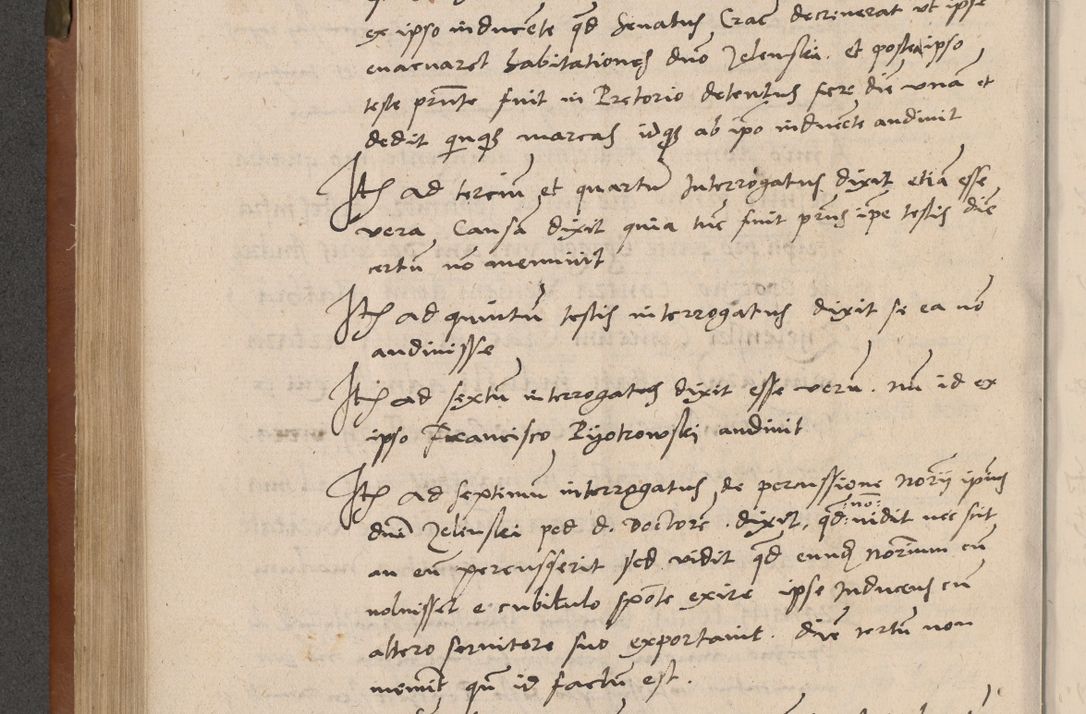 ex ipso inducente qd Senatus Crac decreverat ut ipse
evacuaret habitationes dno Zelenski. Et postea ipso
teste pnte fuit in Pretorio detentus fere die una et
dedit quinqz marcas idqz ab ipo inducente audivit
Ite ad tercium et quartu Interrogatus dixit etia esse
vera Causa dixit quia tuc fuit pns ipe testis die
certu no meminit
Ite ad quintu testis interrogatus dixit se ea no
audivisse
Ite ad sextu interrogatus dixit esse veru. Na id ex
ipso Francisco Pyotrowski audivit
Ite ad septimu interrogatus de percussione notarii ipius
dni Zelenski ped d. Doctore. dixit, qd no vidit nec scit
an eu percusserit sed vidit qd eundem notarium cu
noluisset e cubiculo sponte exire ipse Inducens cu
altero servitore suo exportavit. Die certu non
meminit qn id factu est.